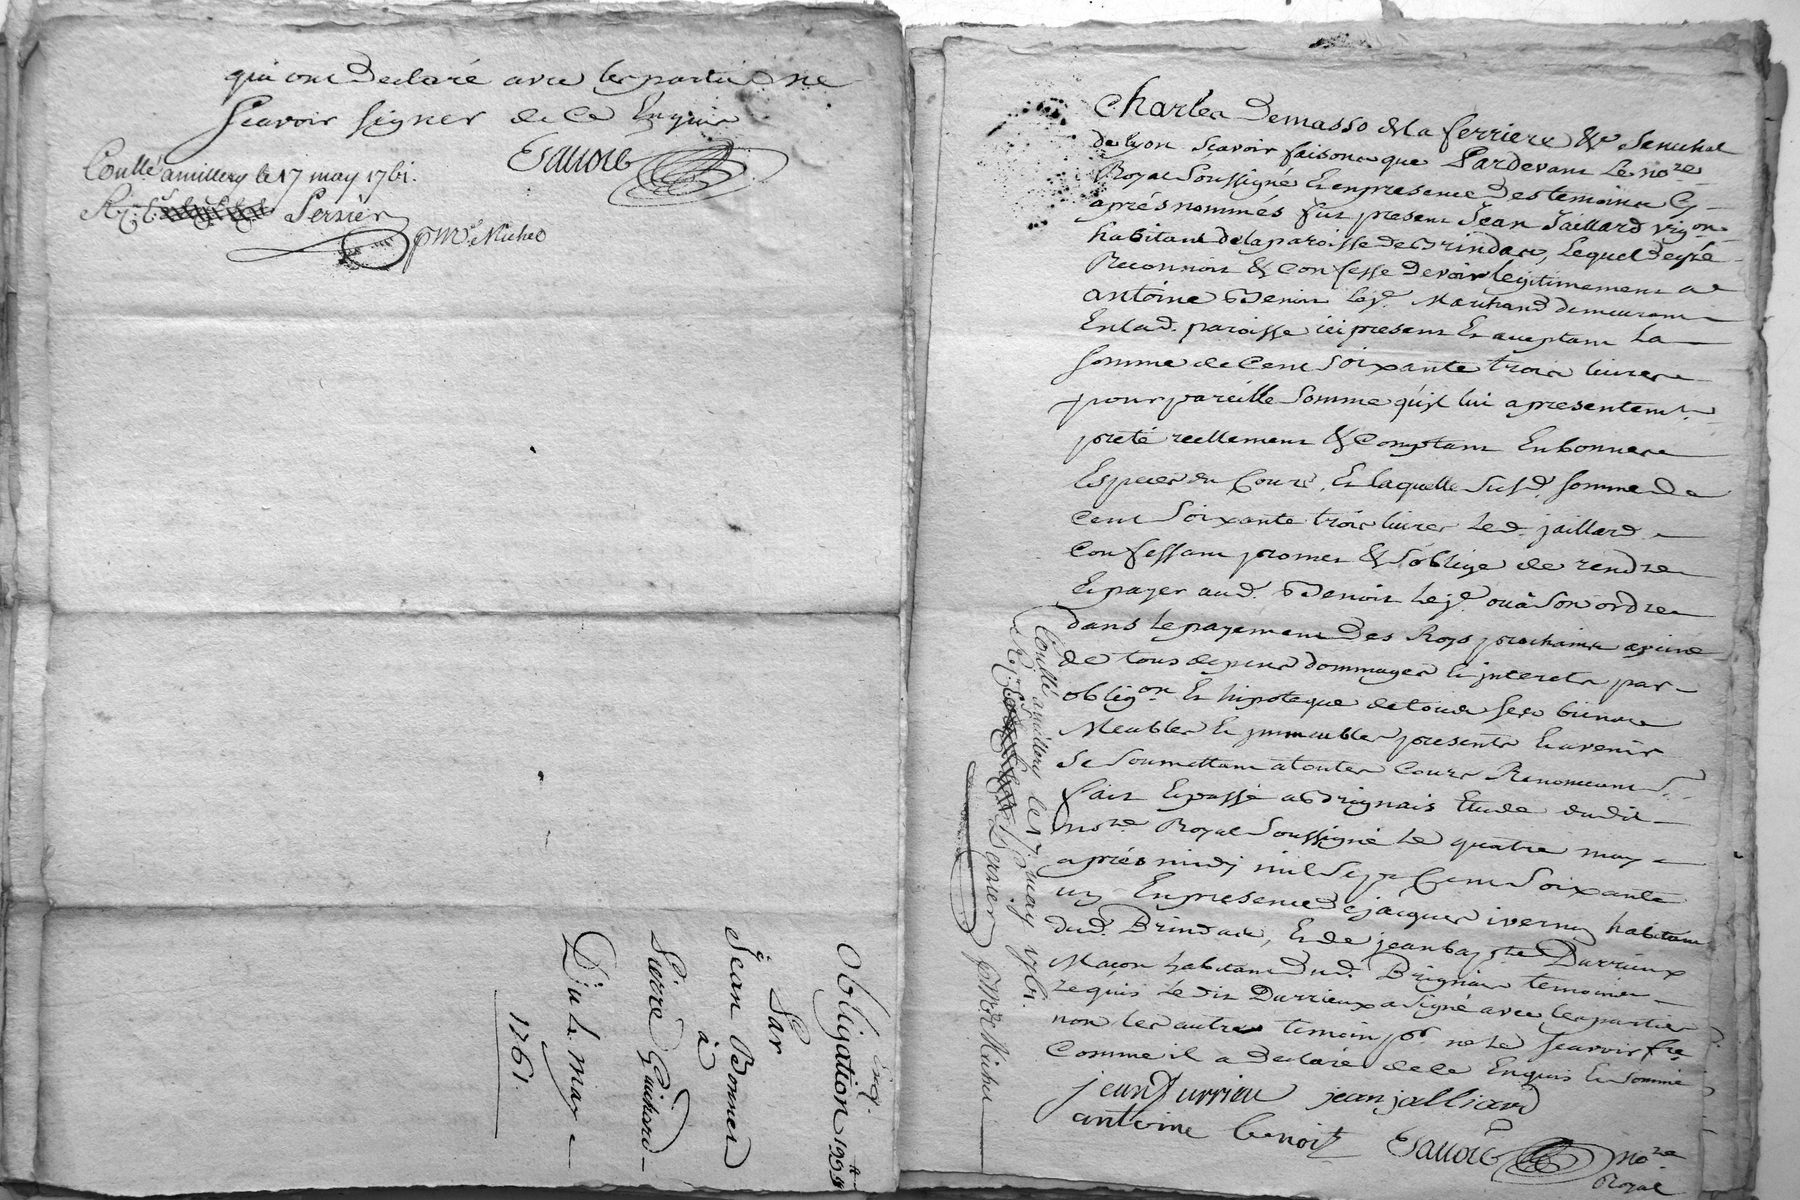 qui ont Declaré avec les parties ne
Scavoir signer de ce Enquis
Controllé a millery le 17 may 1761.
Persier
pr Mr Michel
Obligation
Par
Jean Bonnet
à
Pierre Guichard
Du 4 may
1761.
Charles Demasso de la ferriere &c Senechal
de lyon Scavoir faisons que Pardevant Le nore
Royal Soussigné Et en presence Des temoins Cy
aprés nommés fut present Jean Jaillard vigon
habitant de la paroisse de Brindas, Lequel De gré
Reconnoit & Confesse Devoir legitimement a
antoine Benoit le je. Marchand demeurant
En lad. paroisse ici present Et aceptant La
somme de Cent Soixante trois livres
pour pareille Somme qu'il lui a presentemt.
preté réellement & Comptant En bonnes
Especes du Cours, Et laquelle Susd. somme de
Cent Soixante trois livres Led. jaillard
Confessant promet & S'oblige de rendre
Et payer aud. Benoit le je. ou à Son ordre
dans le payement Des Roys prochains a peine
de tous depens dommages Et interets par
obligon. Et hipoteque de tous ses biens
Meubles Et immeubles presents Et avenir
Se Soumettant a toutes Cours Renonceant &.
fait Et passé a Brignais Etude dudit
nore Royal Soussigné Le quatre may
aprés midy mil Sept Cent Soixante
un En presence De jacques iverny habitant
dud. Brindas, Et de jean bapste Durrieux
Macon habitant dud. Brignais temoins
requis Le dit Durrieux a Signé avec les parties
non les autres temoin pr. ne le Scavoir fre
Comme il a Declaré de ce Enquis Et Sommé
jean Durrieu jean jalliard
antoine benoit nore
Royal
Controllé a millery le 17 may 1761.
Persier pr Mr Michel